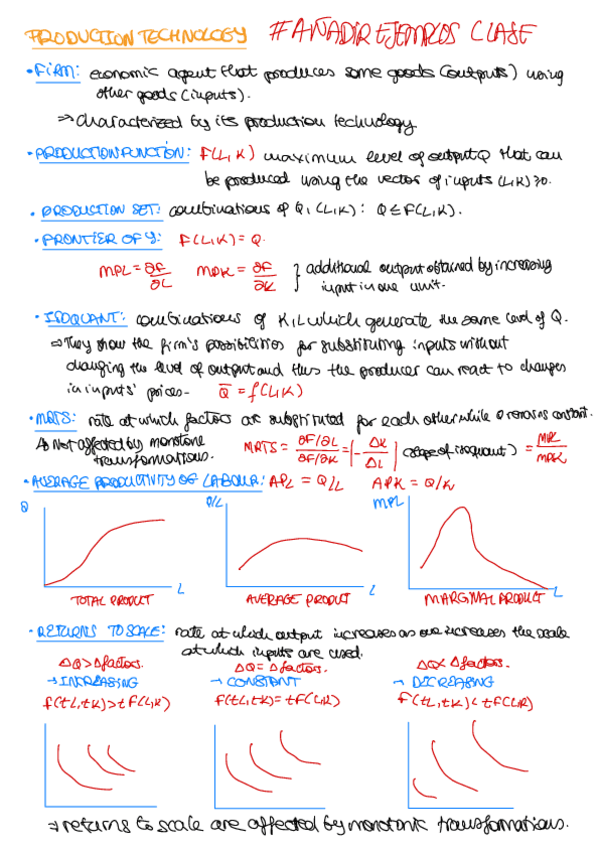 PRODUCTION TECHNOLOGY #AÑADIR EJEMPLOS CLASE
• FIRM: economic agent that produces some goods (outputs) using
other goods (inputs).
⇒ characterized by its production technology
• PRODUCTION FUNCTION: F(L,K) maximum level of output Q that can
be produced using the vector of inputs (L,K)≥0.
• PRODUCTION SET: combinations of Q, (L,K): Q≤F(L,K).
• FRONTIER OF Y: F(L,K)=Q.
MPL = ∂F/∂L MPK = ∂F/∂K } additional output obtained by increasing
input in one unit.
• ISOQUANT: combinations of K,L which generate the same level of Q.
⇒ They show the firm's possibilities for substituting inputs without
changing the level of output and thus the producer can react to changes
in inputs' prices- Q̄ = f(L,K)
• MRTS: rate at which factors are substituted for each other while Q remains constant.
↳ Not affected by monotone
transformations.
MRTS = ∂F/∂L / ∂F/∂K = |- ΔK/ΔL| (slope of isoquant) = MPL/MPK
• AVERAGE PRODUCTIVITY OF LABOUR: APL = Q/L APK = Q/K
Q Q/L MPL
L L L
TOTAL PRODUCT AVERAGE PRODUCT MARGINAL PRODUCT
• RETURNS TO SCALE: rate at which output increases as one increases the scale
at which inputs are used.
ΔQ > Δfactors. ΔQ = Δfactors. ΔQ < Δfactors.
→ INCREASING → CONSTANT → DECREASING
f(tL,tK)>tF(L,K) f(tL,tK)=tF(L,K) f(tL,tK)<tF(L,K)
⇒ returns to scale are affected by monotonic transformations.